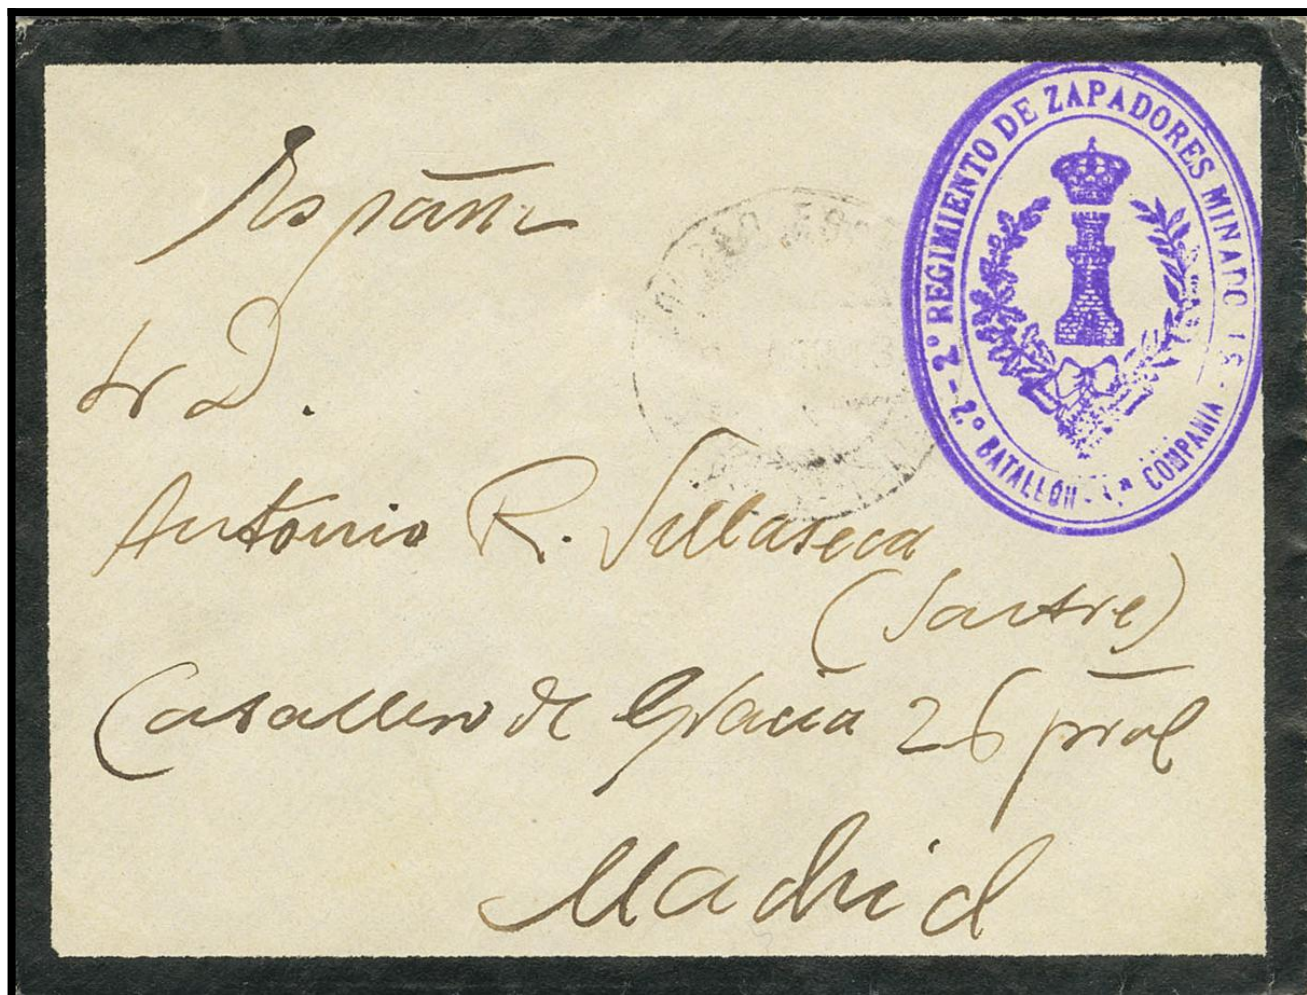 España
Sr D.
Antonio R. Villaseca
(Sastre)
Caballero de Gracia 26 pral
Madrid
2º REGIMIENTO DE ZAPADORES MINADO
2.º BATALLÓN - 1.ª COMPAÑIA